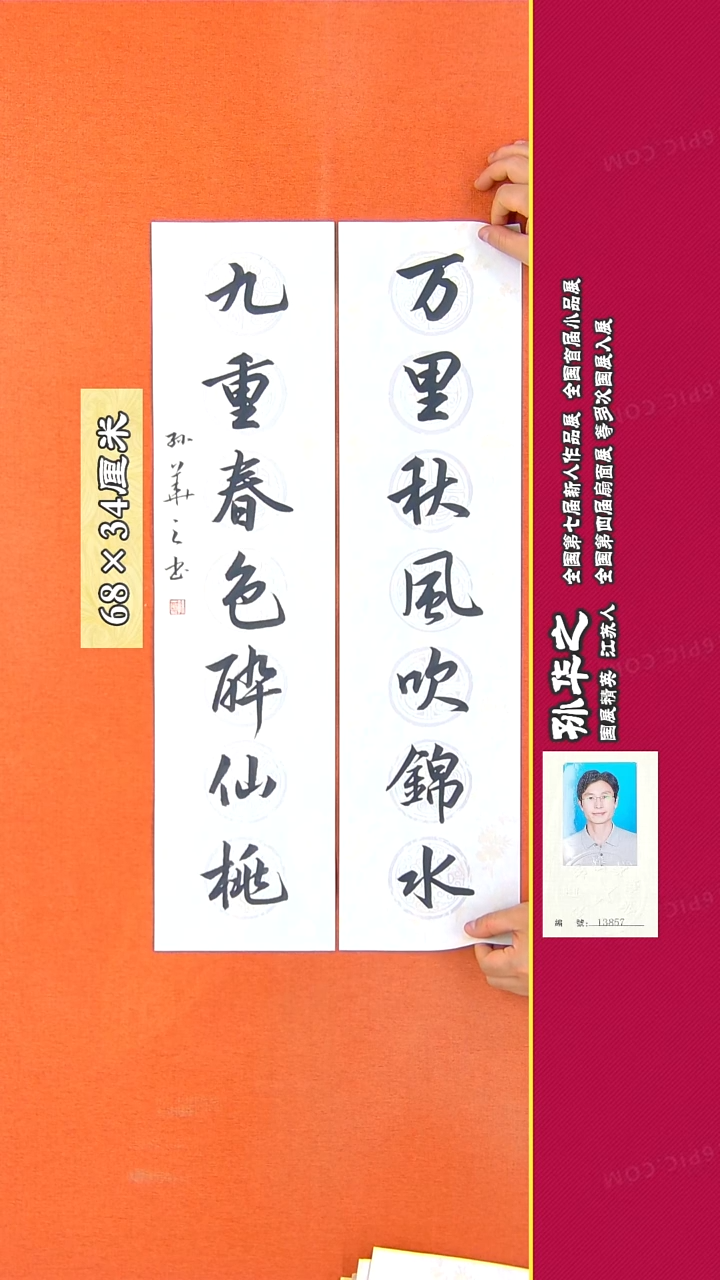 万里秋風吹錦水
九重春色醉仙桃
孙華之书
68×34厘米
孙华之
國展精英 江苏人
全國第七届新人作品展 全國首届小品展
全國第四届扇面展 等多次國展入展
編 號: 13857
6PIC.COM
6PIC.COM
6PIC.COM
6PIC.COM
6PIC.COM